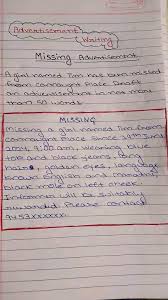 Advertisement
Writing
Missing Advertisement
A girl named Tim has been missed
from Connaught Place Draft
an advertisement in not more
than 50 words.
MISSING
Missing a girl named Tim from
Connaught Place since 29th
9:00 am, wearing blue
top and black jeans, long
hair, golden eyes, language
known English and
black mole on left cheek.
will be suitably
rewarded. Please contact
9453xxxxxx.